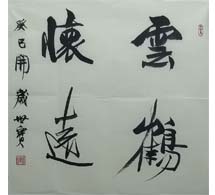 雲鶴
懷遠
癸巳開歲世寶